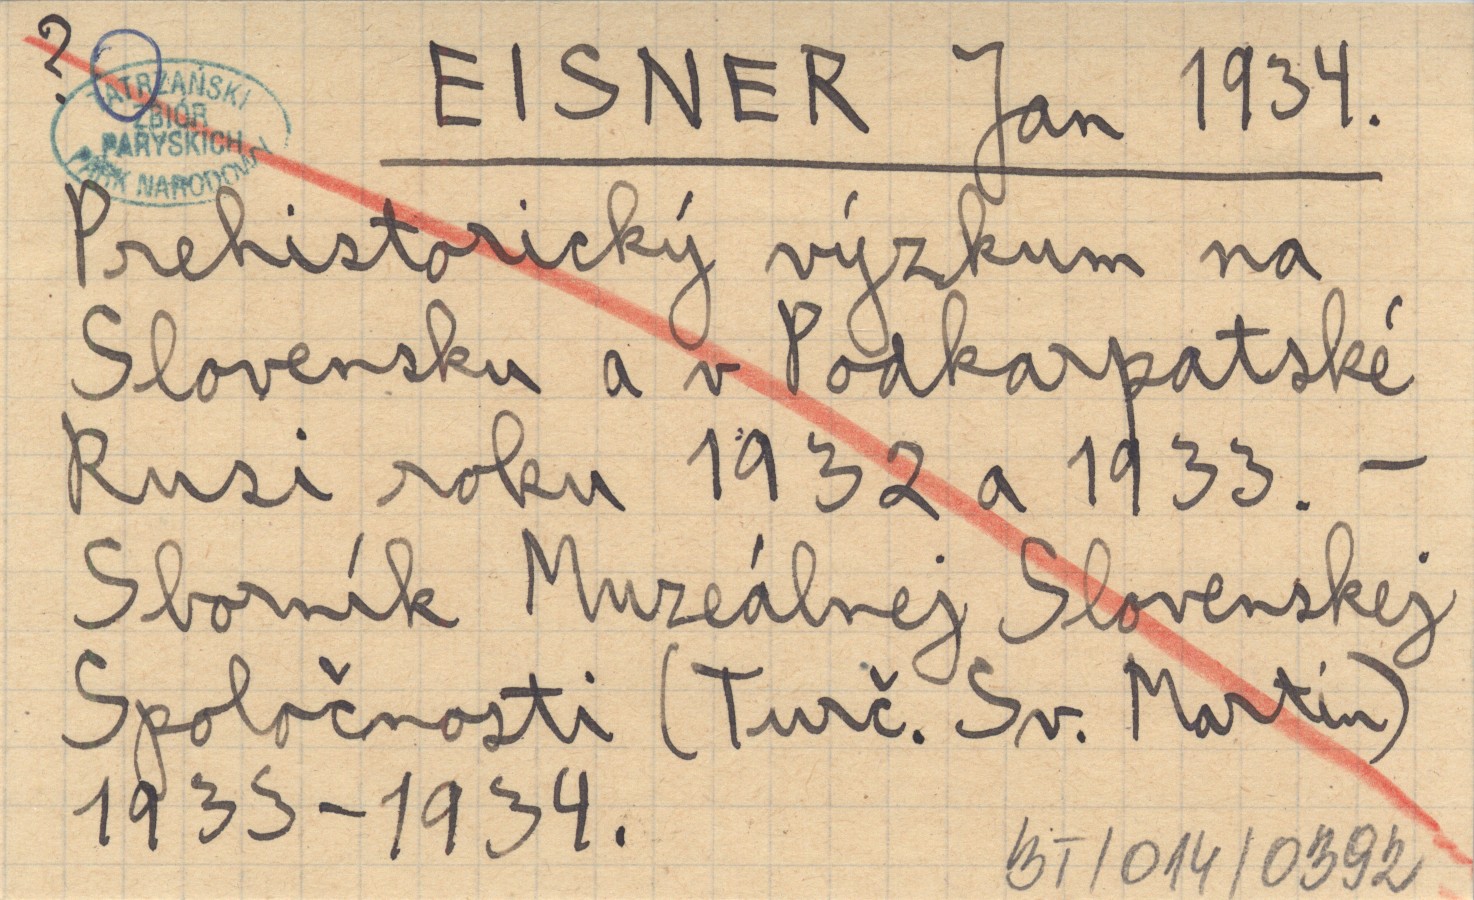 ?
TATRZAŃSKI
ZBIÓR
PARYSKICH
PARK NARODOWY
EISNER Jan 1934.
Prehistorický výzkum na
Slovensku a v Podkarpatské
Rusi roku 1932 a 1933. –
Sborník Muzeálnej Slovenskej
Spoločnosti (Turč. Sv. Martin)
1933-1934.
BT/014/0392